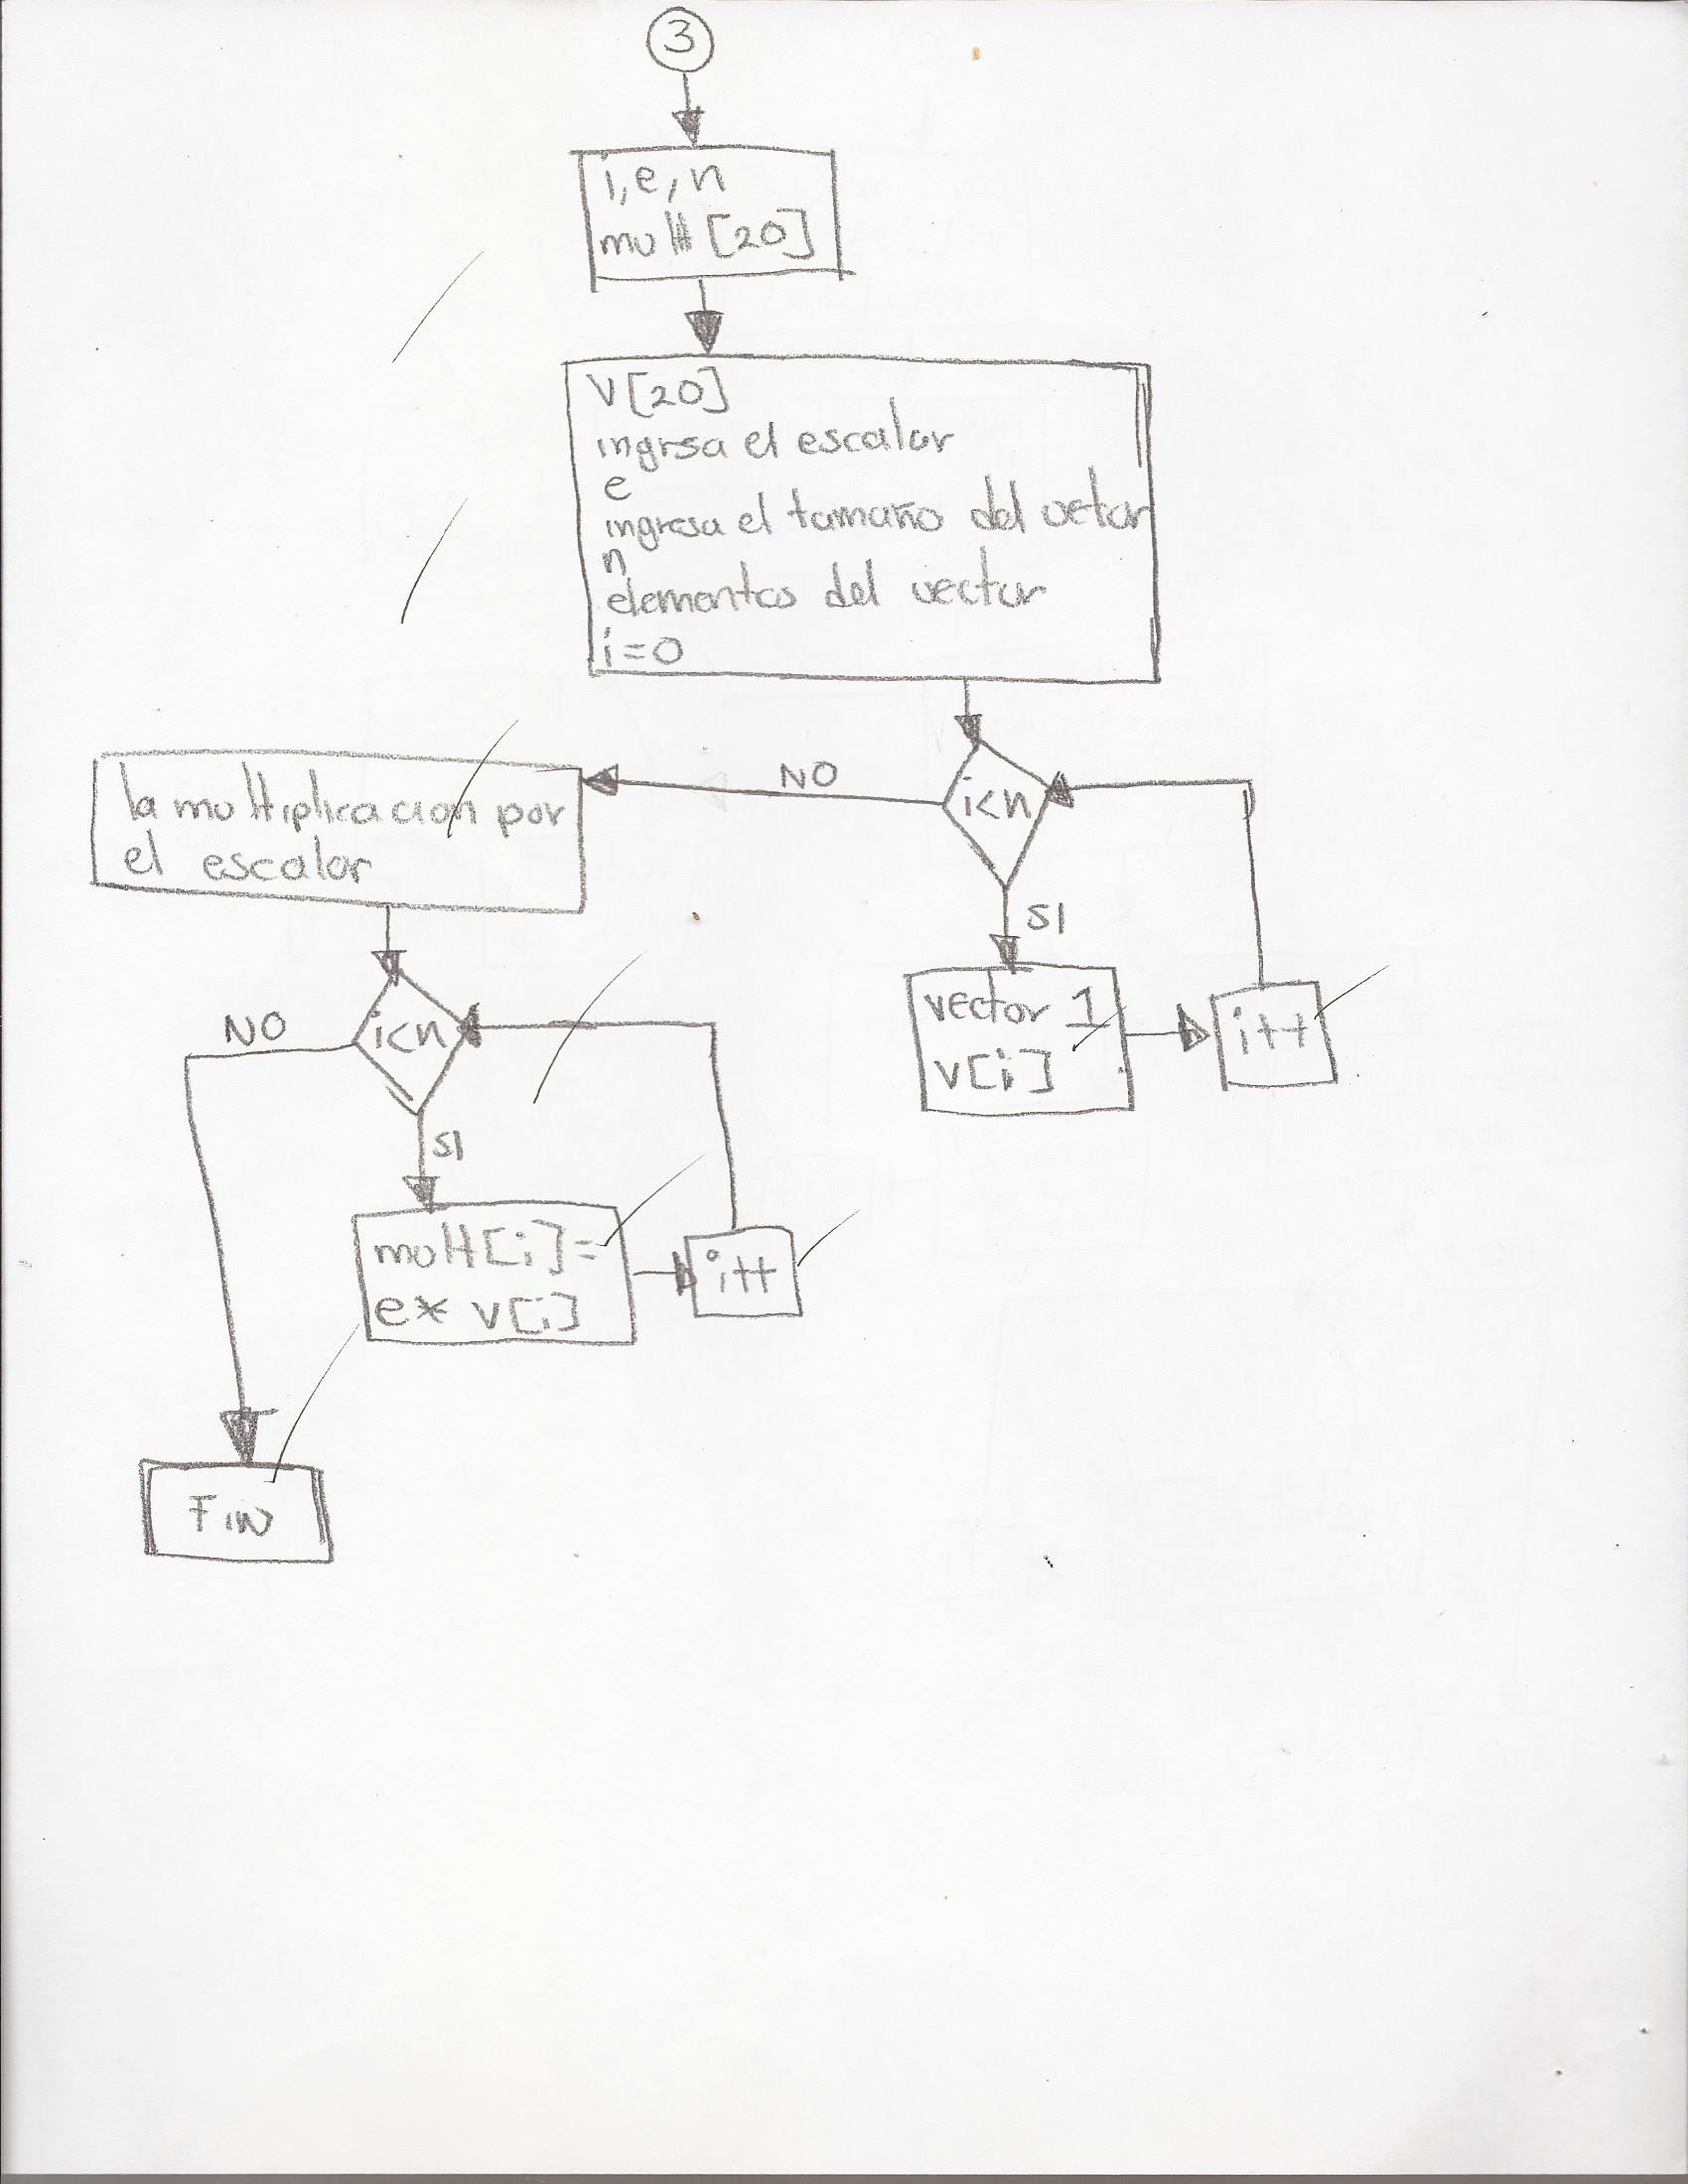 3
i, e, n
mult [20]
V[20]
ingrsa el escalar
e
ingresa el tamaño del vetor
n
elementos del vector
i=0
i<n
NO
SI
la multiplicacion por
el escalar
vector 1
v[i]
i++
i<n
NO
SI
mult[i]=
e* v[i]
i++
Fin